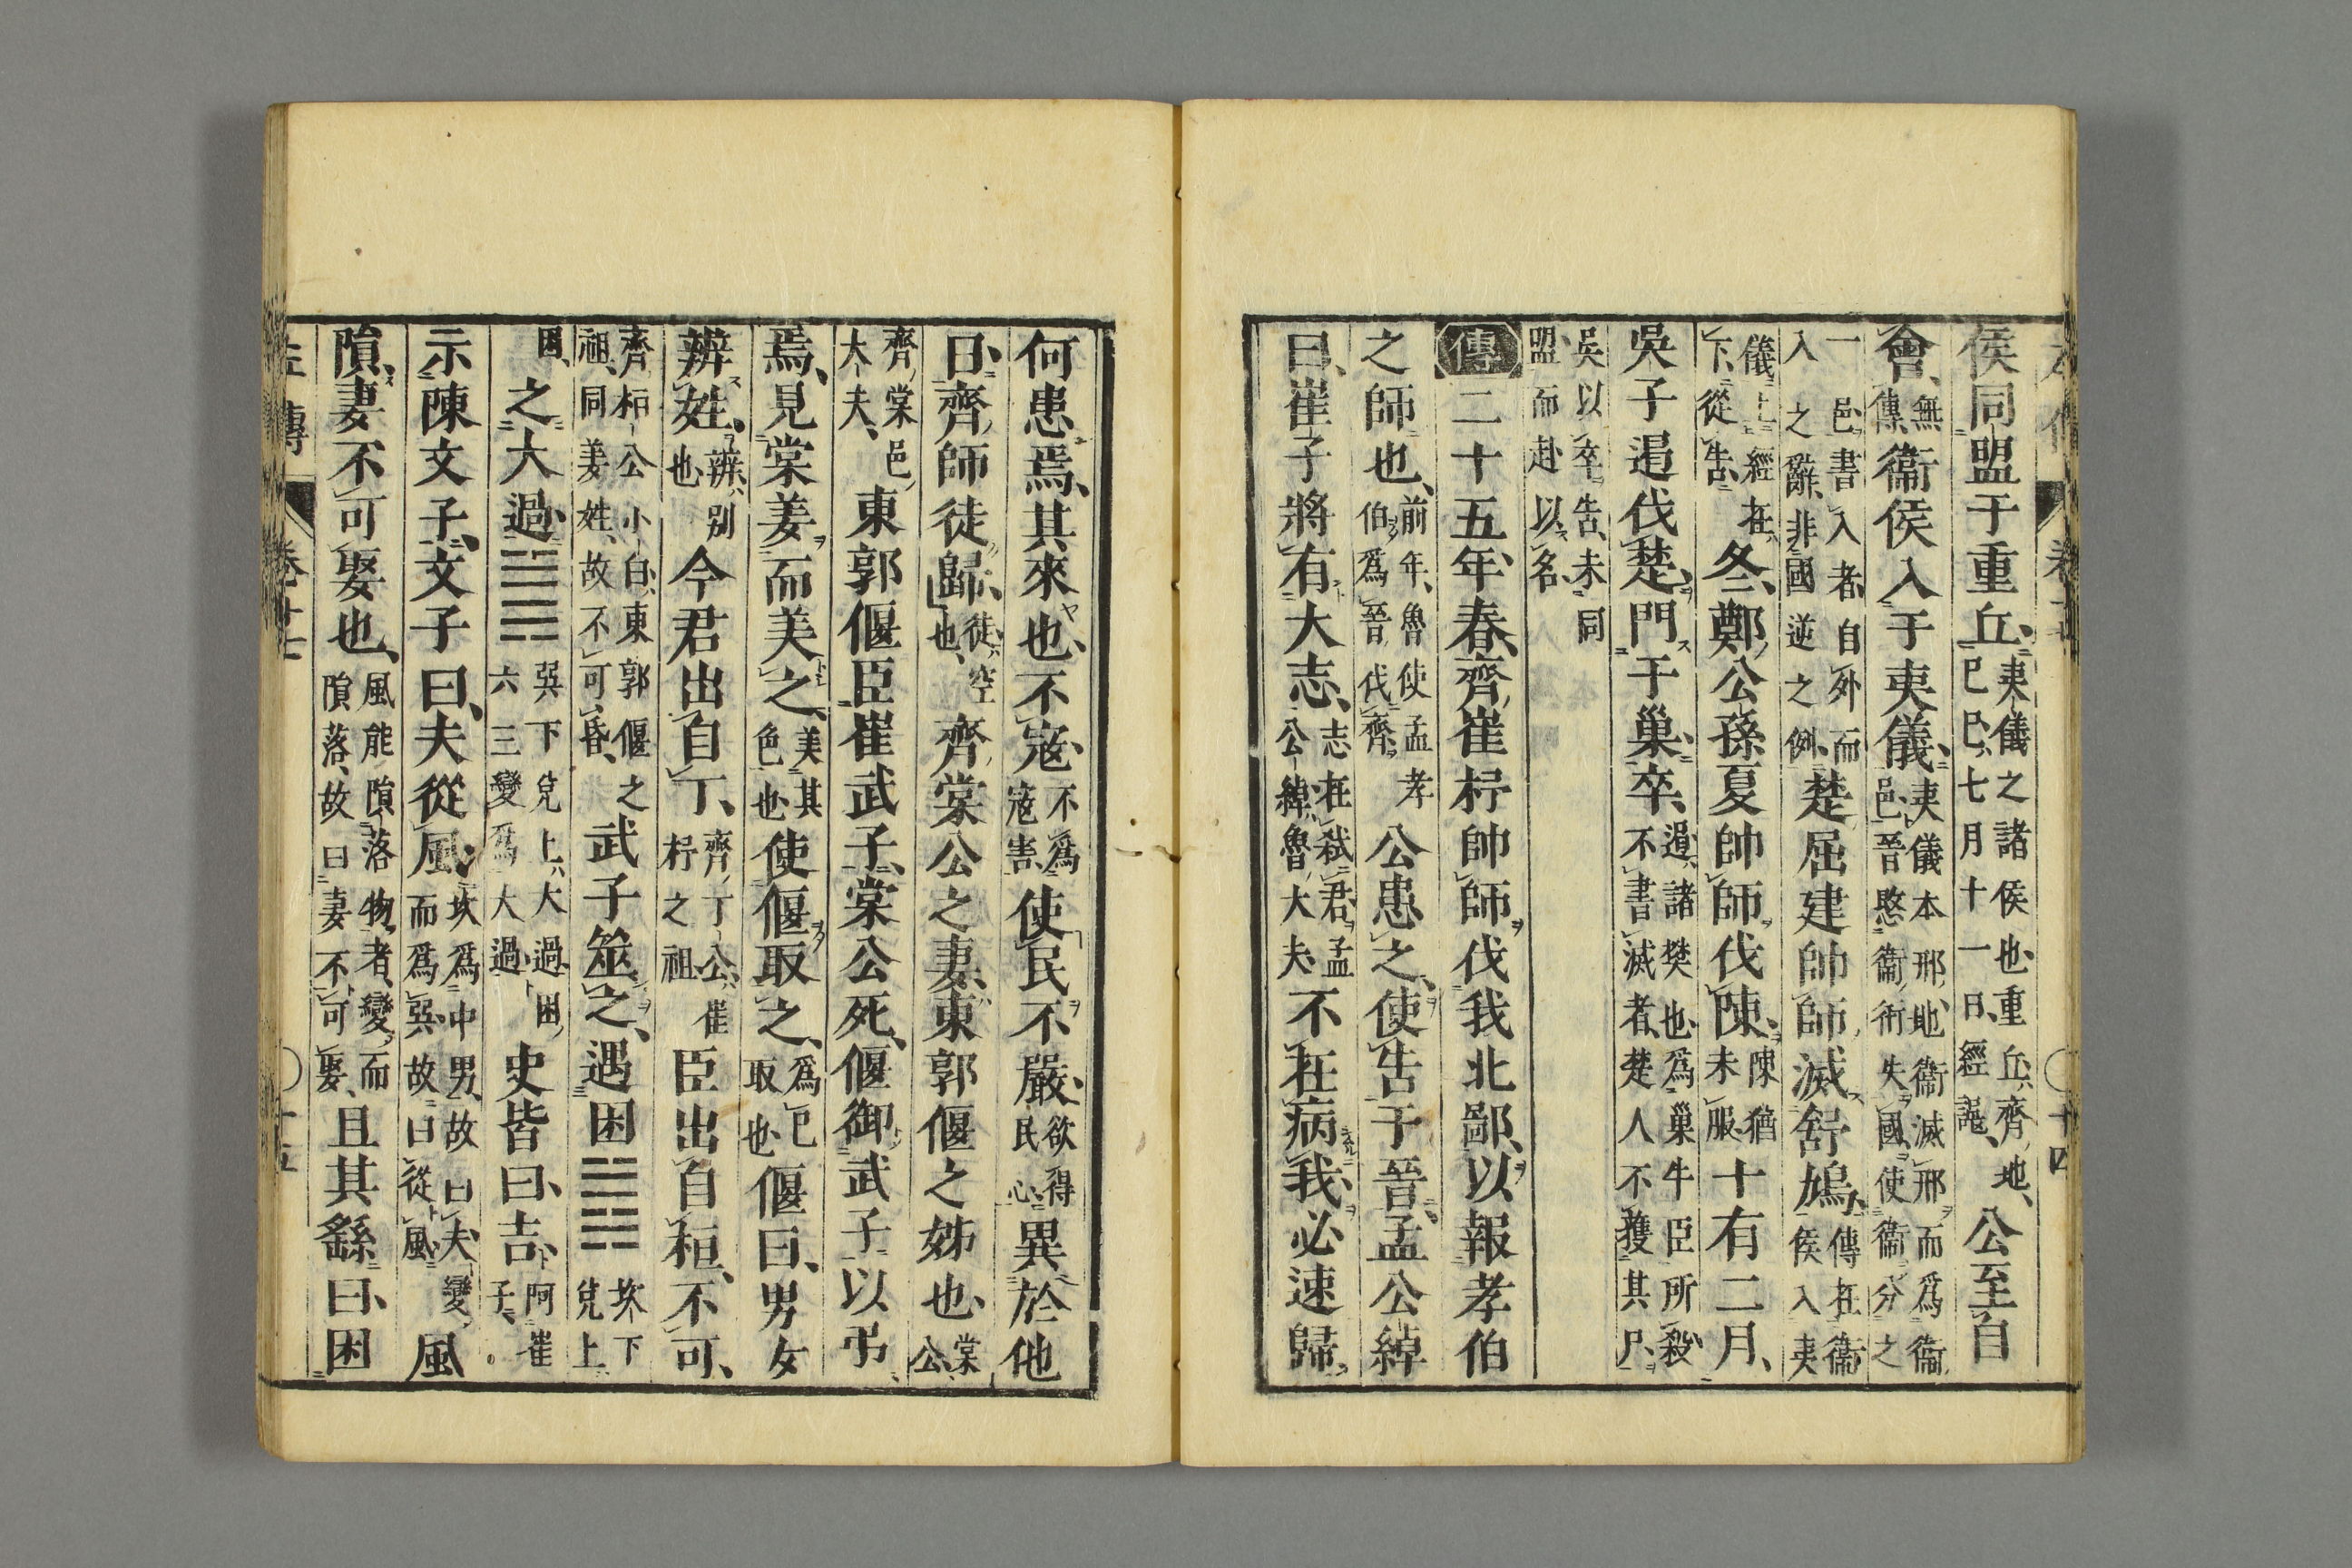 侯同盟于重丘、夷儀之諸侯也重丘齊地、己巳七月十一日、經誤、公至自
會、無傳衞侯入于夷儀、夷儀本邢地衞滅邢而爲衞邑晉愍衞衎失國使衞分之
一邑書入者自外而入之辭、非國逆之例、楚屈建帥師滅舒鳩、傳在衞侯入夷
儀上經在下從告、冬、鄭公孫夏帥師伐陳、陳猶未服十有二月、
吳子遏伐楚、門于巢卒、遏諸樊也爲巢牛臣所殺不書滅者、楚人不獲其尸、
吳以卒告、未同盟而赴以名
傳二十五年、春、齊崔杼帥師伐我北鄙、以報孝伯
之師也、前年、魯使孟孝伯爲晉伐齊公患之、使告于晉、孟公綽
曰、崔子將有大志、志在弑君孟公綽魯大夫不在病我、必速歸
何患焉、其來也、不寇、不爲寇害使民不嚴、欲得民心異於他
日、齊師徒歸、徒空也、齊棠公之妻、東郭偃之姊也、棠公、
齊棠邑大夫、東郭偃臣崔武子、棠公死、偃御武子以弔
焉、見棠姜而美之、美其色也使偃取之、爲己取也偃曰、男女
辨姓、辨別也今君出自丁、齊丁公崔杼之祖臣出自桓、不可、
齊桓公小白、東郭偃之祖、同姜姓、故不可昏、武子筮之、遇困䷮坎下兌上
困、之大過䷛巽下兌上大過困六三變爲大過史皆曰、吉、阿崔子、
示陳文子、文子曰、夫從風、坎爲中男故曰夫變而爲巽故曰從風風
隕、妻不可娶也、風能隕落物者、變而隕落、故曰妻不可娶、且其繇曰、困
卷十七